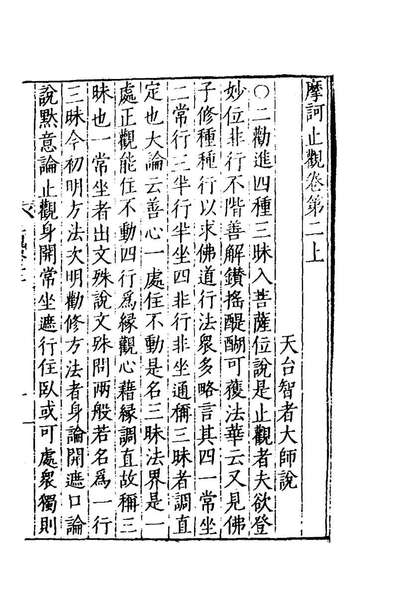 摩訶止觀卷第二上
天台智者大師說
○二勸進四種三昧入菩薩位說是止觀者夫欲登
妙位非行不階善解鑽搖醍醐可獲法華云又見佛
子修種種行以求佛道行法眾多略言其四一常坐
二常行三半行半坐四非行非坐通稱三昧者調直
定也大論云善心一處住不動是名三昧法界是一
處正觀能住不動四行爲緣觀心藉緣調直故稱三
昧也一常坐者出文殊說文殊問兩般若名爲一行
三昧今初明方法次明勸修方法者身論開遮口論
說默意論止觀身開常坐遮行住臥或可處眾獨則